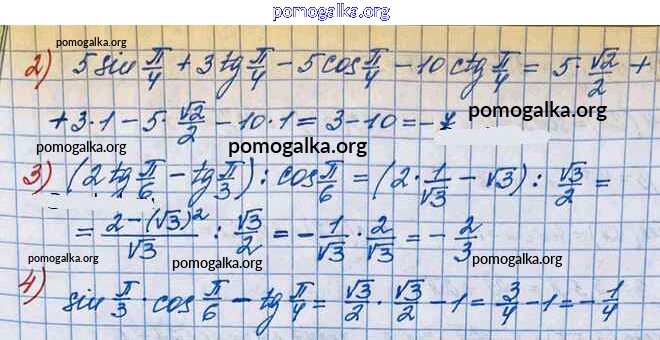 pomogalka.org
pomogalka.org
2) 5 sin π/4 + 3 tg π/4 − 5 cos π/4 − 10 ctg π/4 = 5 · √2/2 +
+ 3 · 1 − 5 · √2/2 − 10 · 1 = 3 − 10 = −7 pomogalka.org
pomogalka.org pomogalka.org
3) (2 tg π/6 − tg π/3) : cos π/6 = (2 · 1/√3 − √3) : √3/2 =
= (2 − (√3)²)/√3 : √3/2 = − 1/√3 · 2/√3 = − 2/3
pomogalka.org pomogalka.org pomogalka.org
4) sin π/3 · cos π/6 − tg π/4 = √3/2 · √3/2 − 1 = 3/4 − 1 = − 1/4